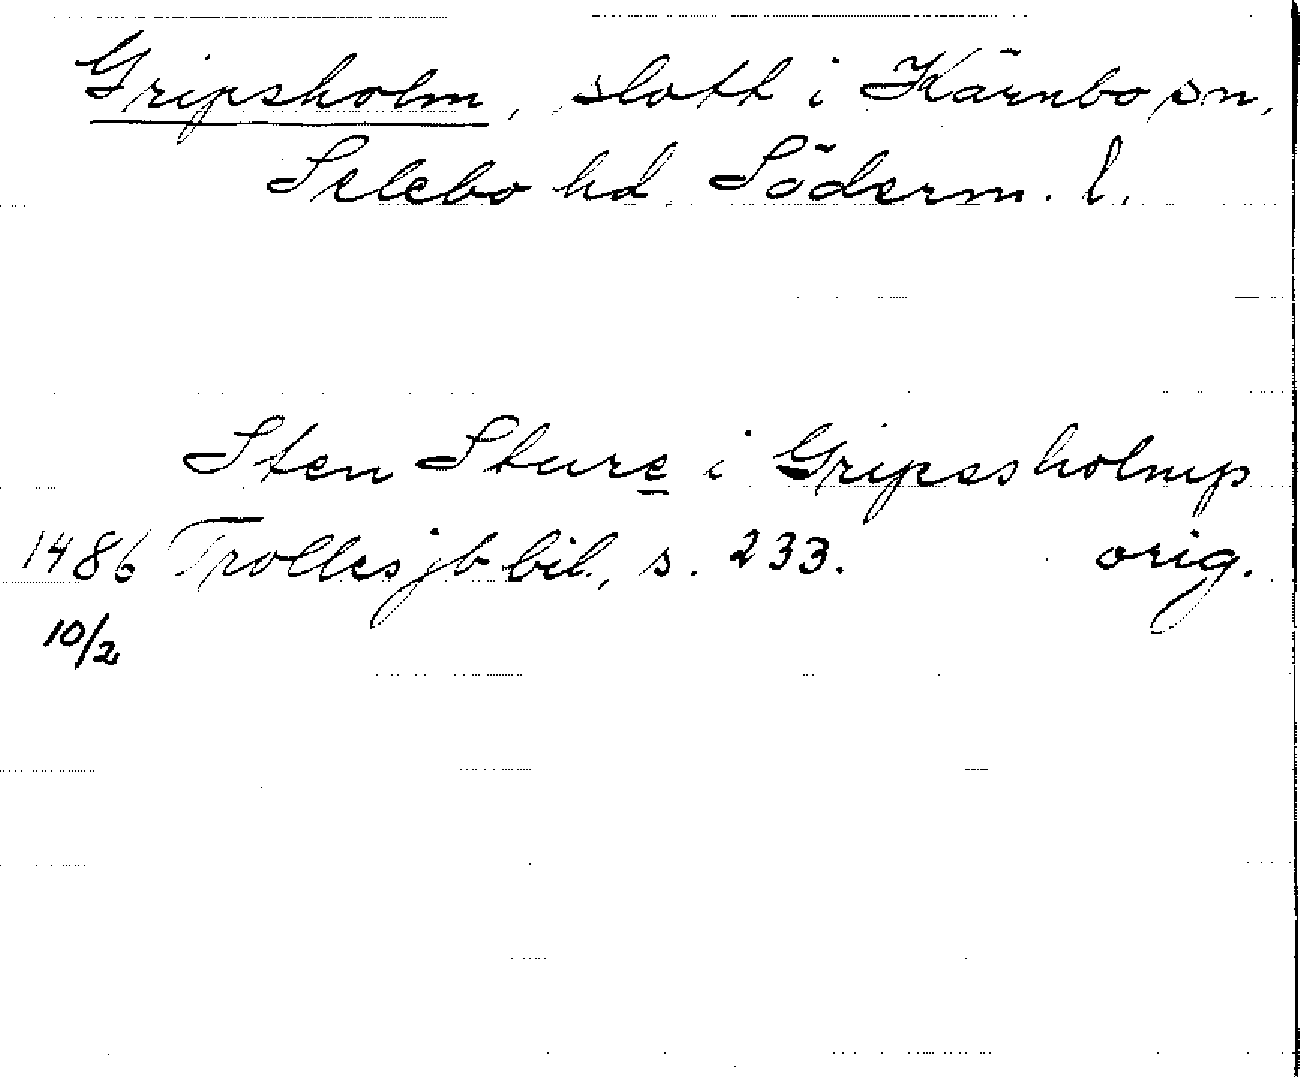 Gripsholm, slott i Kärnbo sn,
Selebo hd, Söderm. l.
Sten Sture i Gripssholmp
1486 Trolles jb bil, s. 233. orig.
10/2